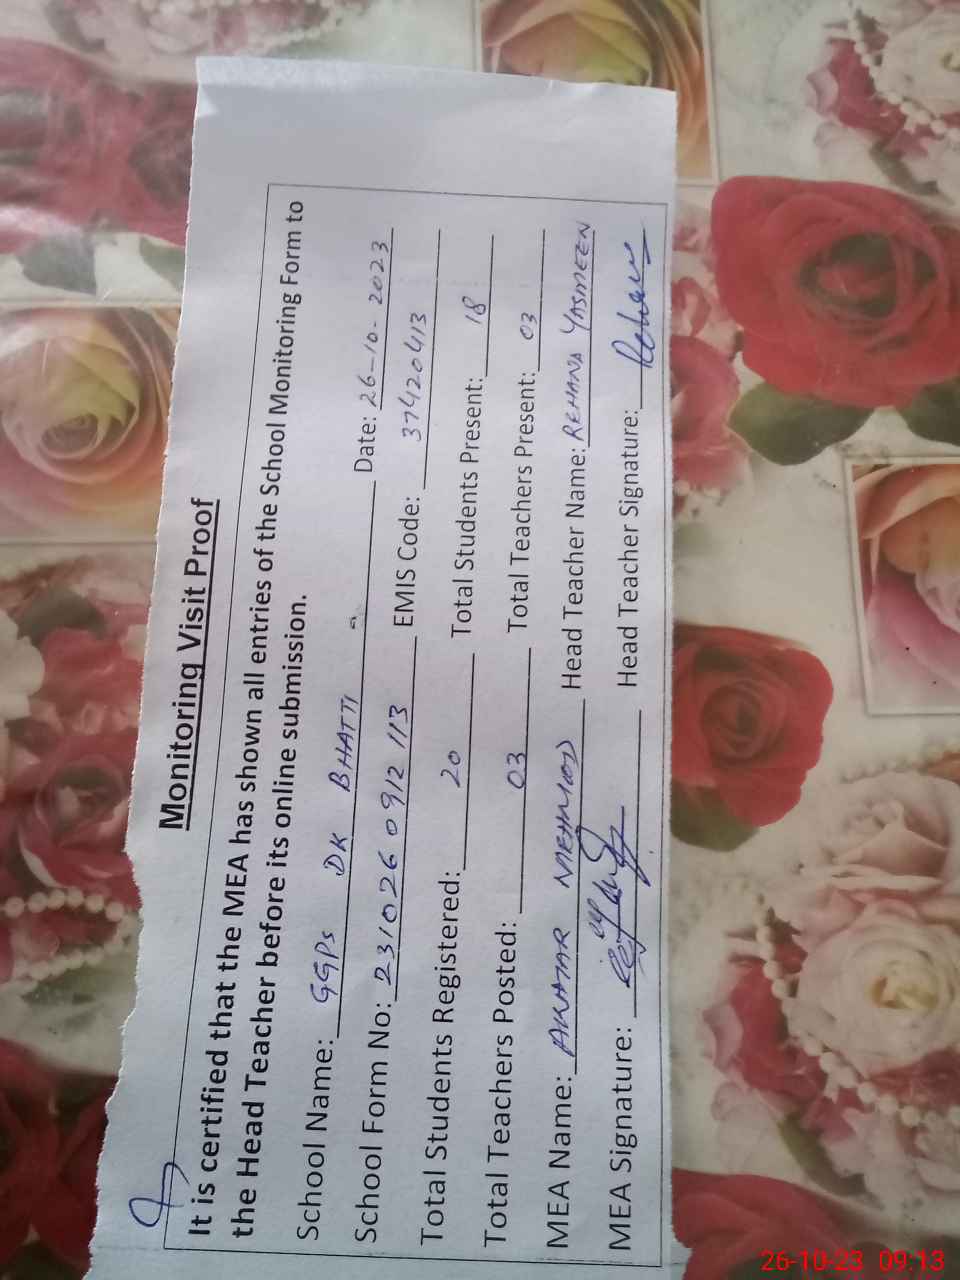 Monitoring Visit Proof
It is certified that the MEA has shown all entries of the School Monitoring Form to
the Head Teacher before its online submission.
School Name: GGPS DK BHATTI Date: 26-10-2023
School Form No: 231026 0912 113 EMIS Code: 37420413
Total Students Registered: 20 Total Students Present: 18
Total Teachers Posted: 03 Total Teachers Present: 03
MEA Name: AKHTAR MEHMOOD Head Teacher Name: REHANA YASMEEN
MEA Signature: Head Teacher Signature:
26-10-23 09:13